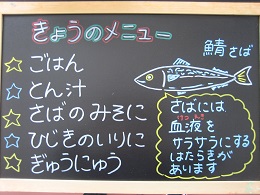 きょうのメニュー
ごはん
とん汁
さばのみそに
ひじきのいりに
ぎゅうにゅう
鯖さば
さばには
けつえき
血液を
サラサラにする
はたらきが
あります